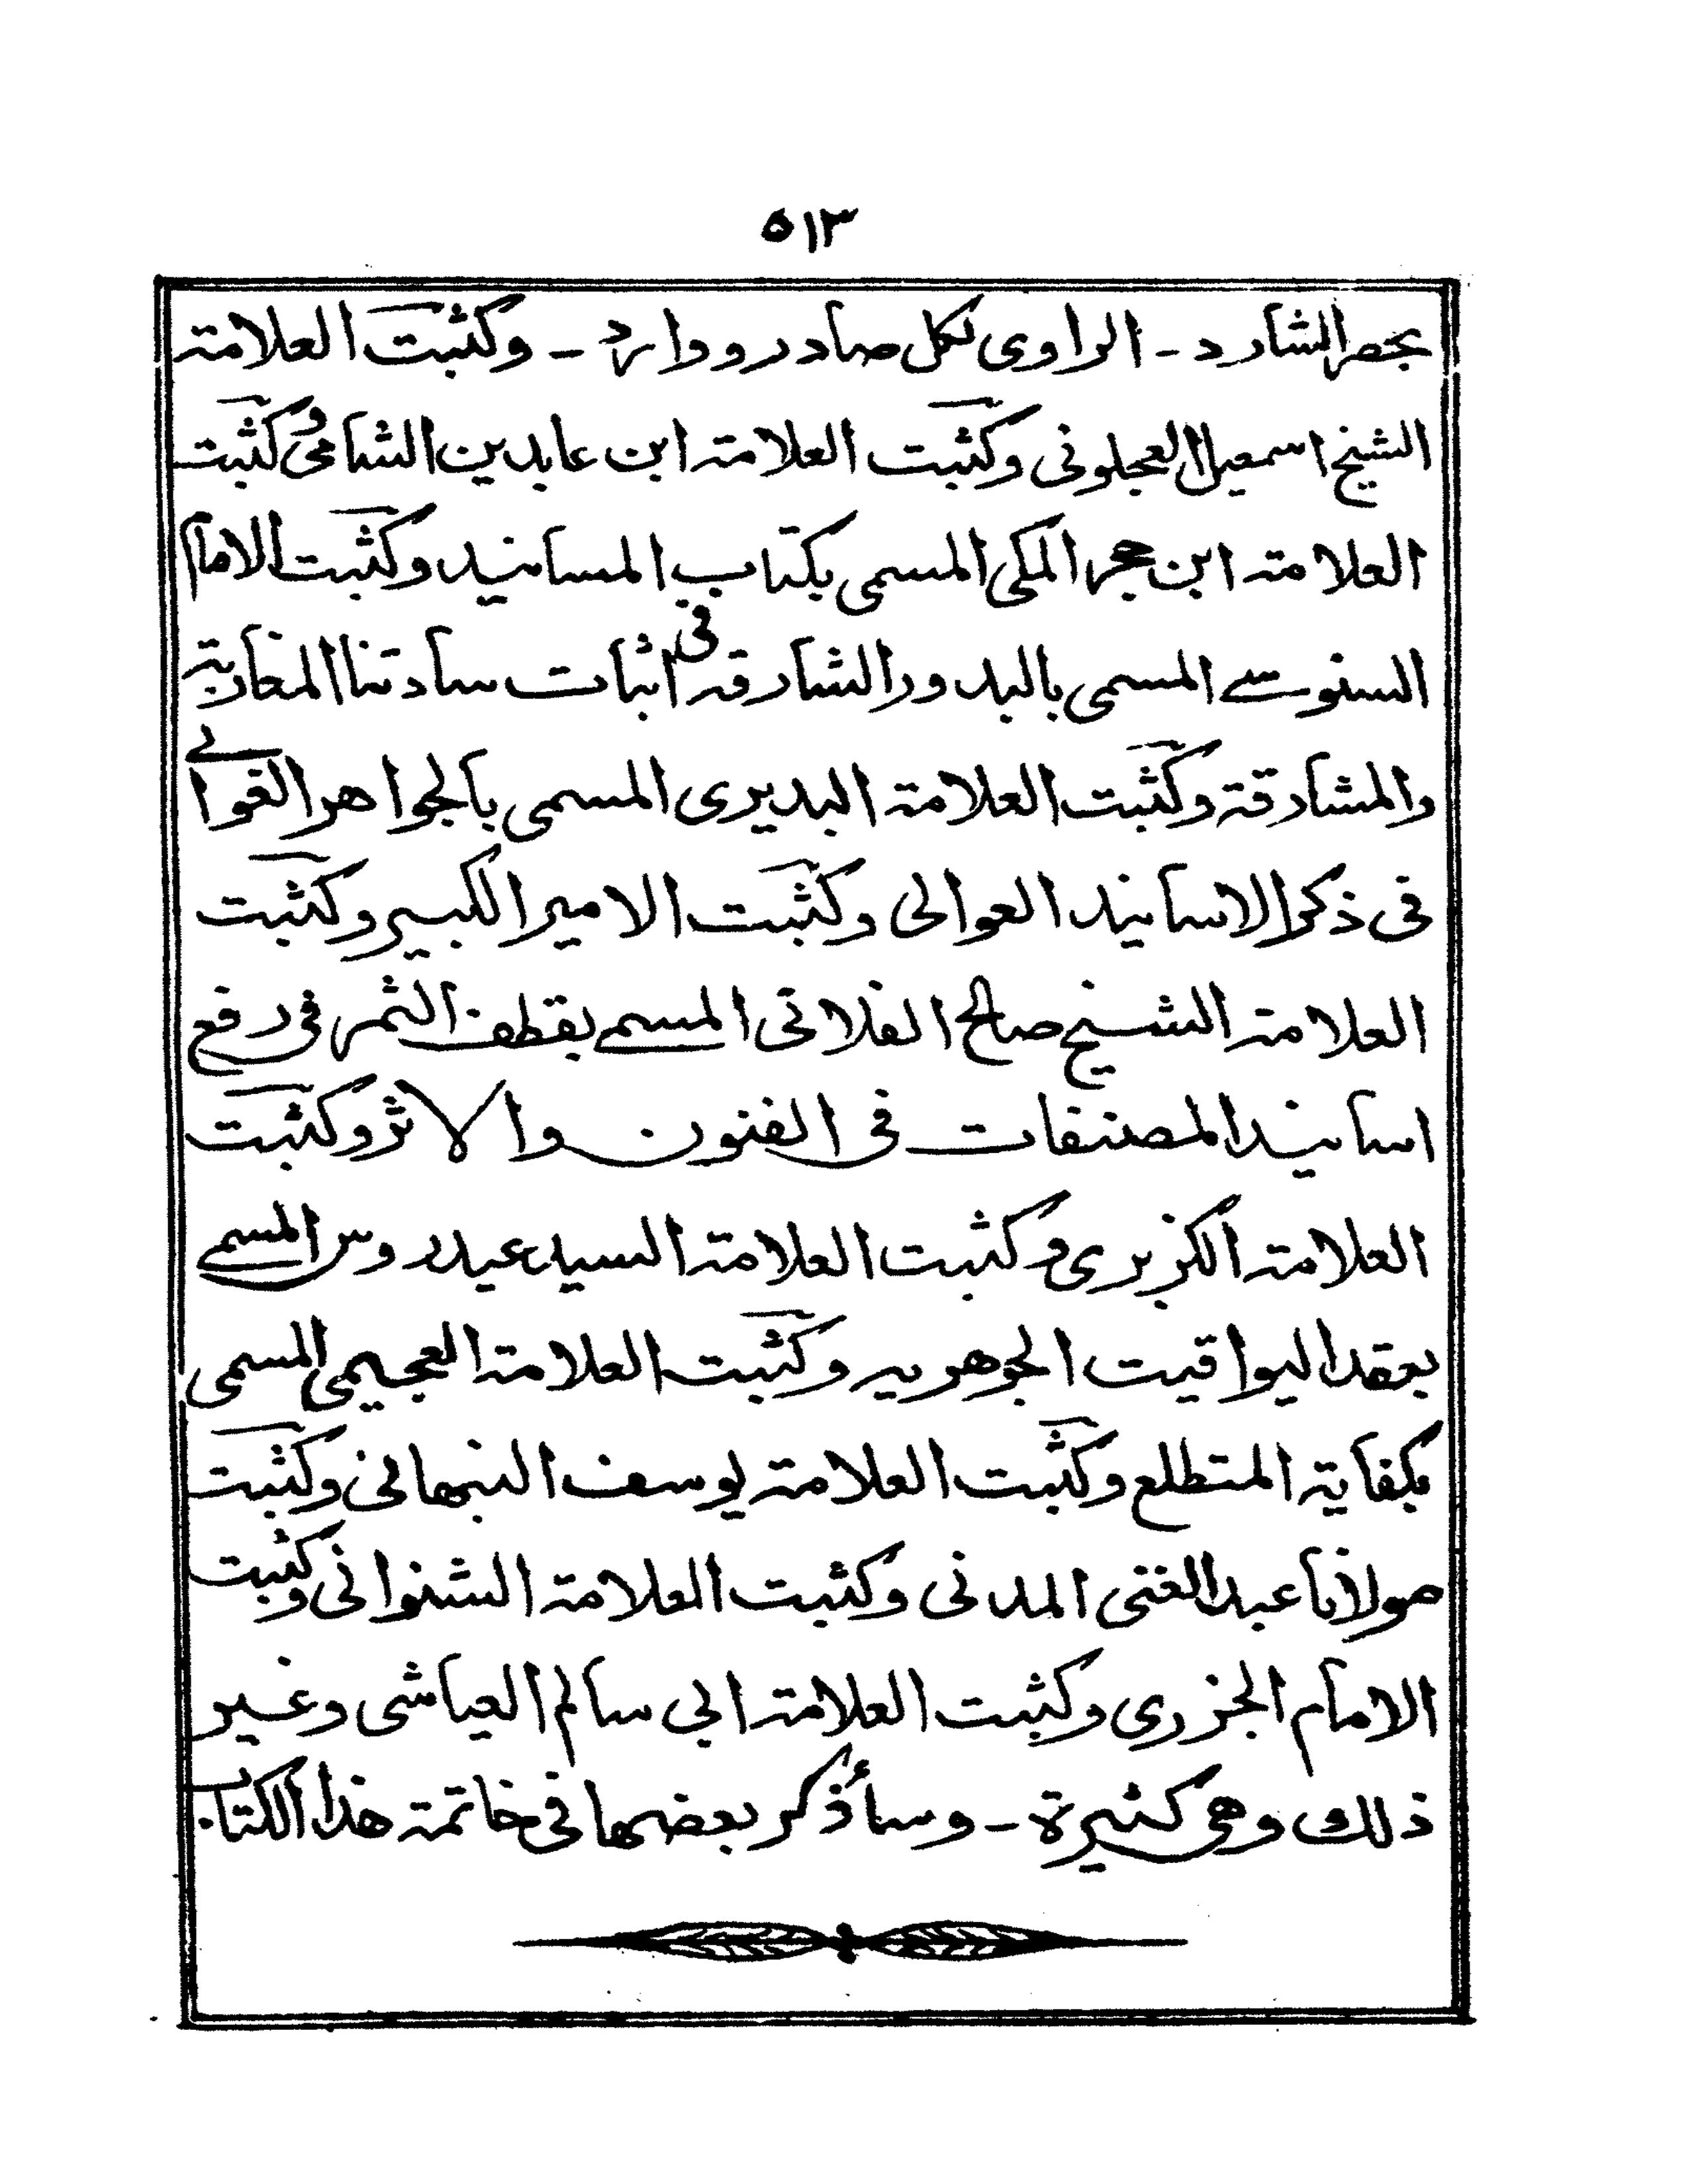 ٥١٣
بحصر الشارد - الراوى لكل صادر ووارد - وكثبت العلامة
الشيخ اسمعيل العجلونى وكثبت العلامة ابن عابدين الشامى وكثبت
العلامة ابن حجر المكى المسمى بكتاب المسانيد وكثبت الامام
السنوسے المسمى بالبدور الشارقه فى اثبات سادتنا المغاربة
والمشارقة وكثبت العلامة البديرى المسمى بالجواهر الغوالے
فى ذكر الاسانيد العوالى وكثبت الامير الكبير وكثبت
العلامة الشيخ صالح الفلانى المسمے بقطف الثمر فى رفع
اسانيد المصنفات فى الفنون والاثر وكثبت
العلامة الكزبرى وكثبت العلامة السيد عيدروس المسمے
بعقد اليواقيت الجوهريه وكثبت العلامة العجيمى المسمى
بكفاية المتطلع وكثبت العلامة يوسف النبهانى وكثبت
مولانا عبد الغنى المدنى وكثبت العلامة الشنوانى وكثبت
الامام الجزرى وكثبت العلامة ابى سالم العياشى وغير
ذلك وهى كثيرة - وسأذكر بعضها فى خاتمة هذا الكتاب.